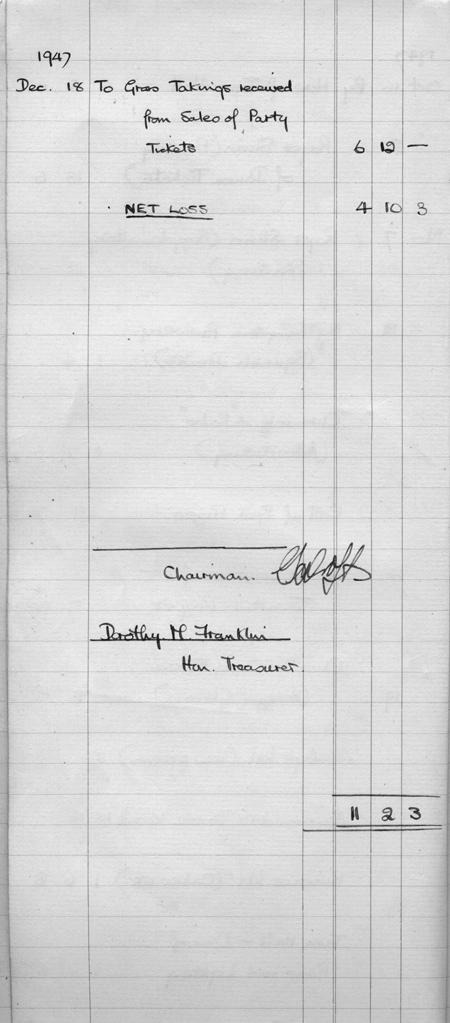 1947
Dec. 18 To Gross Takings received
from Sales of Party
Tickets 6 12 —
NET LOSS 4 10 3
Chairman.
Dorothy M. Franklin
Hon. Treasurer.
11 2 3